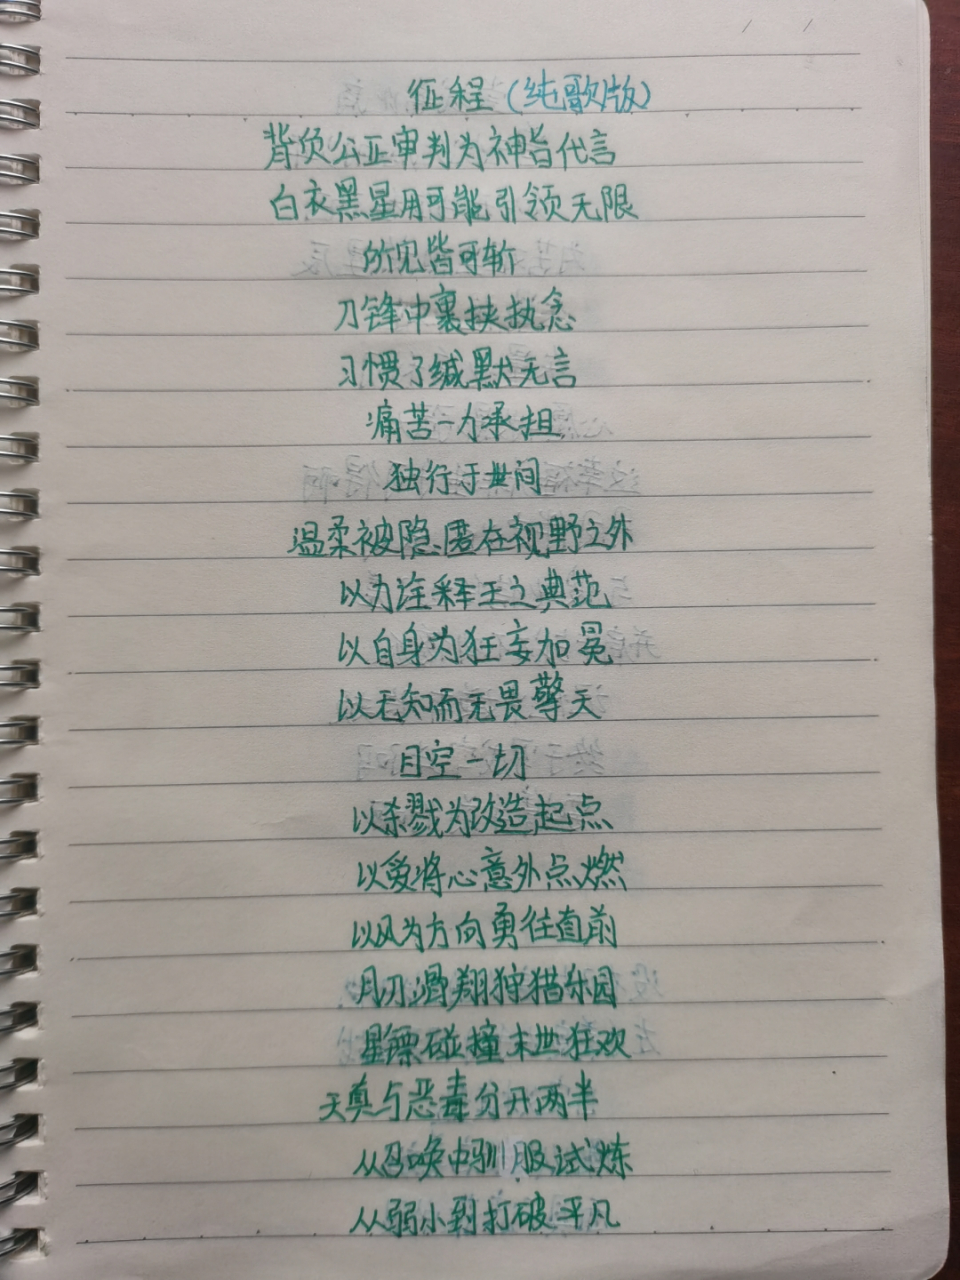 征程（纯歌版）
背负公正审判为神旨代言
白衣黑星用可能引领无限
所见皆可斩
刀锋中裹挟执念
习惯了缄默无言
痛苦一力承担
独行于世间
温柔被隐匿在视野之外
以力诠释王之典范
以自身为狂妄加冕
以无知而无畏擎天
目空一切
以杀戮为改造起点
以爱将心意外点燃
以风为方向勇往直前
月刃滑翔狩猎乐园
星镖碰撞末世狂欢
天真与恶毒分开两半
从召唤中驯服试炼
从弱小到打破平凡